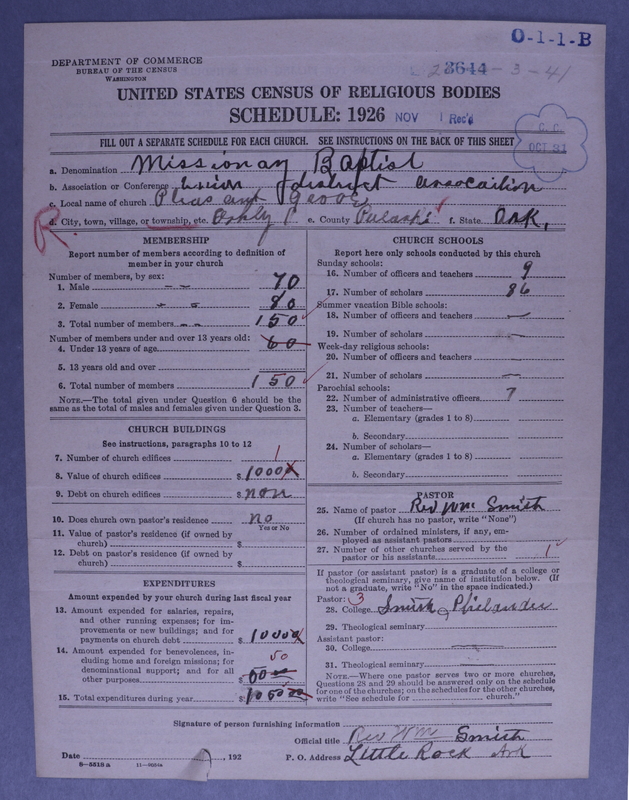 O-1-1-B
DEPARTMENT OF COMMERCE
BUREAU OF THE CENSUS
WASHINGTON
23644-3-41
UNITED STATES CENSUS OF RELIGIOUS BODIES
SCHEDULE: 1926 NOV 1 Rec'd
C. C. OCT 31
FILL OUT A SEPARATE SCHEDULE FOR EACH CHURCH. SEE INSTRUCTIONS ON THE BACK OF THIS SHEET
a. Denomination Missionay Baptist
b. Association or Conference Union district assocaition
c. Local name of church Pleasant Grove
R. d. City, town, village, or township, etc. Ashly e. County Pulaski f. State Ark.
MEMBERSHIP
Report number of members according to definition of member in your church
Number of members, by sex:
1. Male 70
2. Female 80
3. Total number of members 150
Number of members under and over 13 years old:
4. Under 13 years of age 60
5. 13 years old and over
6. Total number of members 150
NOTE.—The total given under Question 6 should be
same as the total of males and females given under Question 3.
CHURCH BUILDINGS
See instructions, paragraphs 10 to 12
7. Number of church edifices 1
8. Value of church edifices $ 1000
9. Debt on church edifices $ non
10. Does church own pastor's residence no
Yes or No
11. Value of pastor's residence (if owned by
church) $
12. Debt on pastor's residence (if owned by
church) $
EXPENDITURES
Amount expended by your church during last fiscal year
13. Amount expended for salaries, repairs,
and other running expenses; for im-
provements or new buildings; and for
payments on church debt $ 1000
14. Amount expended for benevolences, in-
cluding home and foreign missions; for
denominational support; and for all
other purposes $ 50
15. Total expenditures during year $ 1050
CHURCH SCHOOLS
Report here only schools conducted by this church
Sunday schools:
16. Number of officers and teachers 9
17. Number of scholars 86
Summer vacation Bible schools:
18. Number of officers and teachers
19. Number of scholars
Week-day religious schools:
20. Number of officers and teachers
21. Number of scholars
Parochial schools:
22. Number of administrative officers 7
23. Number of teachers—
a. Elementary (grades 1 to 8)
b. Secondary
24. Number of scholars—
a. Elementary (grades 1 to 8)
b. Secondary
PASTOR
25. Name of pastor Rev Wm Smith
(If church has no pastor, write "None")
26. Number of ordained ministers, if any, em-
ployed as assistant pastors
27. Number of other churches served by the
pastor or his assistants 1
If pastor (or assistant pastor) is a graduate of a college or
theological seminary, give name of institution below. (If
not a graduate, write "No" in the space indicated.)
Pastor: 3
28. College Smith Philander
29. Theological seminary
Assistant pastor:
30. College
31. Theological seminary
NOTE.—Where one pastor serves two or more churches,
Questions 28 and 29 should be answered only on the schedule
for one of the churches; on the schedules for the other churches,
write "See schedule for church."
Signature of person furnishing information
Official title Rev Wm Smith
Date , 192 P. O. Address Little Rock Ark
8-5513a 11-9024a